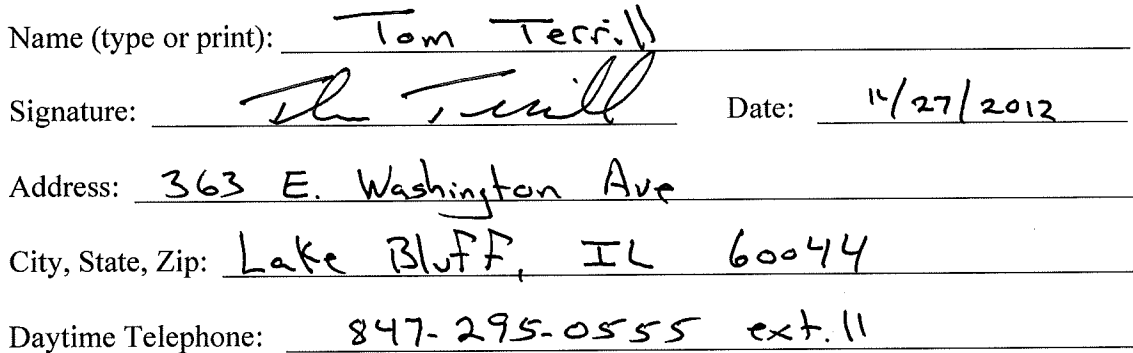 Name (type or print): Tom Terrill
Signature: Tom Terrill Date: 11/27/2012
Address: 363 E. Washington Ave
City, State, Zip: Lake Bluff, IL 60044
Daytime Telephone: 847-295-0555 ext. 11